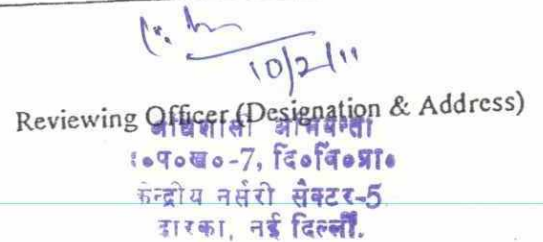 10/2/11
Reviewing Officer (Designation & Address)
अधिशासी अभियन्ता
द०प०ख०-7, दि०वि०प्रा०
केन्द्रीय नर्सरी सैक्टर-5
द्वारका, नई दिल्ली.